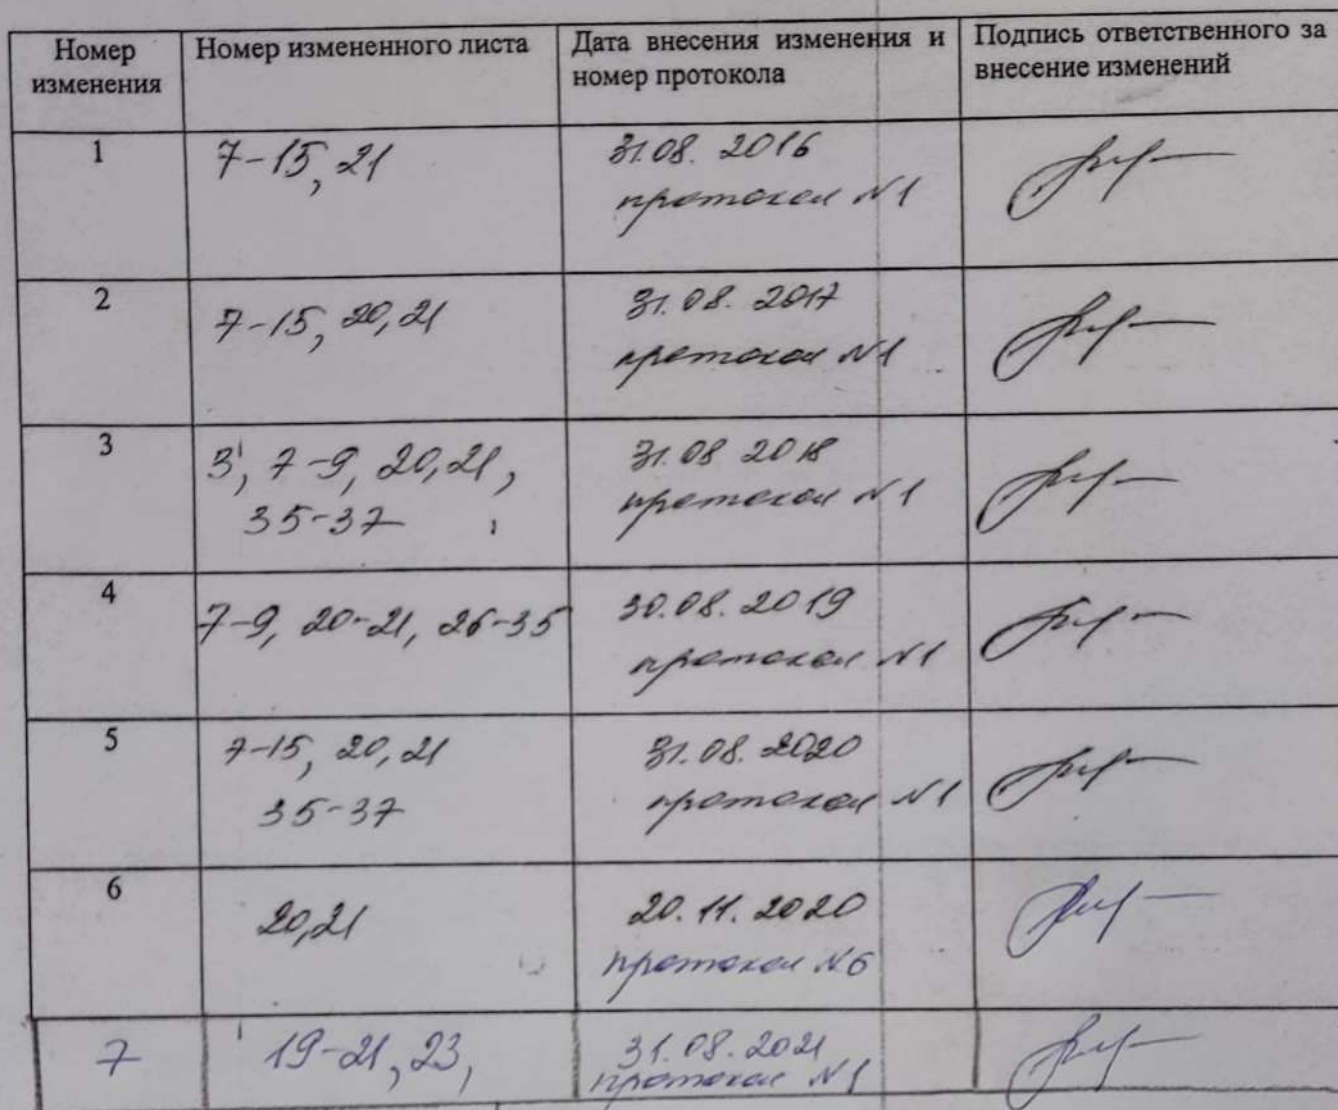 Номер изменения
Номер измененного листа
Дата внесения изменения и номер протокола
Подпись ответственного за внесение изменений
1
7-15, 21
31.08. 2016
протокол №1
2
7-15, 20,21
31.08. 2017
протокол №1
3
3, 7-9, 20,21,
35-37
31.08 2018
протокол №1
4
7-9, 20-21, 26-35
30.08. 2019
протокол №1
5
7-15, 20,21
35-37
31.08. 2020
протокол №1
6
20,21
20.11.2020
протокол №6
7
19-21, 23,
31.08.2021
протокол №1